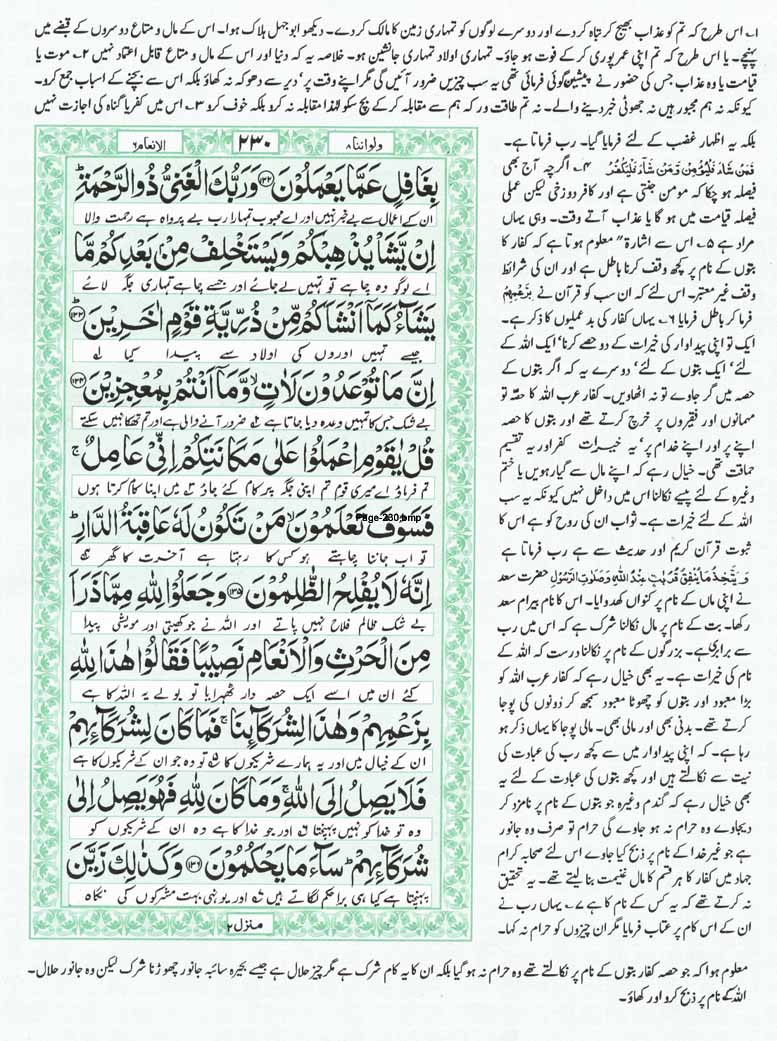 ۱۔ اس طرح کہ تم کو عذاب بھیج کر تباہ کر دے اور دوسرے لوگوں کو تمہاری زمین کا مالک کر دے۔ دیکھو ابو جہل ہلاک ہوا۔ اس کے مال و متاع دوسروں کے قبضے میں
پہنچے۔ یا اس طرح کہ تم اپنی عمر پوری کر کے فوت ہو جاؤ۔ تمہاری اولاد تمہاری جانشین ہو۔ خلاصہ یہ کہ دنیا اور اس کے مال و متاع قابل اعتماد نہیں ۲۔ موت یا
قیامت یا وہ عذاب جس کی حضور نے پیشین گوئی فرمائی تھی یہ سب چیزیں ضرور آئیں گی مگر اپنے وقت پر، دیر سے دھوکہ نہ کھاؤ بلکہ اس سے بچنے کے اسباب جمع کرو۔
کیونکہ نہ ہم مجبور ہیں نہ جھوٹی خبر دینے والے۔ نہ تم طاقت ور کہ ہم سے مقابلہ کر کے بچ سکو لہٰذا مقابلہ نہ کرو بلکہ خوف کرو ۳۔ اس میں کفر یا گناہ کی اجازت نہیں
بلکہ یہ اظہار غضب کے لئے فرمایا گیا۔ رب فرماتا ہے۔
فَمَنْ شَآءَ فَلْيُؤْمِنْ وَّمَنْ شَآءَ فَلْيَكْفُرْ ۴۔ اگرچہ آج بھی
فیصلہ ہو چکا کہ مومن جنتی ہے اور کافر دوزخی لیکن عملی
فیصلہ قیامت میں ہو گا یا عذاب آتے وقت۔ وہی یہاں
مراد ہے ۵۔ اس سے اشارۃً معلوم ہوتا ہے کہ کفار کا
بتوں کے نام پر کچھ وقف کرنا باطل ہے اور ان کی شرائط
وقف غیر معتبر۔ اس لئے کہ ان سب کو قرآن نے بِزَعْمِهِمْ
فرما کر باطل فرمایا ۶۔ یہاں کفار کی بدعملیوں کا ذکر ہے۔
ایک تو اپنی پیداوار کی خیرات کے دو حصے کرنا، ایک اللہ کے
لئے، ایک بتوں کے لئے، دوسرے یہ کہ اگر بتوں کے
حصہ میں گر جاوے تو نہ اٹھاویں۔ کفار عرب اللہ کا حصّہ تو
مہمانوں اور فقیروں پر خرچ کرتے تھے اور بتوں کا حصہ
اپنے پر اور اپنے خدام پر، یہ خیرات کفر اور یہ تقسیم
حماقت تھی۔ خیال رہے کہ اپنے مال سے گیارہویں یا ختم
وغیرہ کے لئے پیسے نکالنا اس میں داخل نہیں کیونکہ یہ سب
اللہ کے لئے خیرات ہے۔ ثواب ان کی روح کو ہے اس کا
ثبوت قرآن کریم اور حدیث سے ہے رب فرماتا ہے
وَيَتَّخِذُ مَا يُنْفِقُ قُرُبٰتٍ عِنْدَ اللّٰهِ وَصَلَوٰتِ الرَّسُوْلِ حضرت سعد
نے اپنی ماں کے نام پر کنواں کھدوایا۔ اس کا نام بیرام سعد
رکھا۔ بت کے نام پر مال نکالنا شرک ہے کہ اس میں رب
سے برابری ہے۔ بزرگوں کے نام پر نکالنا درست کہ اللہ کے
نام کی خیرات ہے۔ یہ بھی خیال رہے کہ کفار عرب اللہ کو
بڑا معبود اور بتوں کو چھوٹا معبود سمجھ کر دونوں کی پوجا
کرتے تھے۔ بدنی بھی اور مالی بھی۔ مالی پوجا کا یہاں ذکر ہو
رہا ہے۔ کہ اپنی پیداوار میں سے کچھ رب کی عبادت کی
نیت سے نکالتے ہیں اور کچھ بتوں کی عبادت کے لئے یہ
بھی خیال رہے کہ گندم وغیرہ جو بتوں کے نام پر نامزد کر
دیجاوے وہ حرام نہ ہو جاوے گی حرام تو صرف وہ جانور
ہے جو غیر خدا کے نام پر ذبح کیا جاوے اس لئے صحابہ کرام
جہاد میں کفار کا ہر قسم کا مال غنیمت بنا لیتے تھے۔ یہ تحقیق
نہ کرتے تھے کہ یہ کس کے نام کا ہے ۷۔ یہاں رب نے
ان کے اس کام پر عتاب فرمایا مگر ان چیزوں کو حرام نہ کہا۔
ولو اننا ۸ ۲۳۰ الانعام ۶
بِغَافِلٍ عَمَّا يَعْمَلُوْنَ ۝۱۳۲ وَرَبُّكَ الْغَنِيُّ ذُو الرَّحْمَةِ ؕ
ان کے اعمال سے بے خبر نہیں اور اے محبوب تمہارا رب بے پرواہ ہے رحمت والا
اِنْ يَّشَاْ يُذْهِبْكُمْ وَيَسْتَخْلِفْ مِنْۢ بَعْدِكُمْ مَّا
اے لوگو وہ چاہے تو تمہیں لے جائے اور جسے چاہے تمہاری جگہ لائے
يَشَآءُ كَمَاۤ اَنْشَاَكُمْ مِّنْ ذُرِّيَّةِ قَوْمٍ اٰخَرِيْنَ ؕ ۝۱۳۳
جیسے تمہیں اوروں کی اولاد سے پیدا کیا ۱
اِنَّ مَا تُوْعَدُوْنَ لَاٰتٍ ۙ وَّمَاۤ اَنْتُمْ بِمُعْجِزِيْنَ ۝۱۳۴
بے شک جس کا تمہیں وعدہ دیا جاتا ہے ۲ ضرور آنے والی ہے اور تم تھکا نہیں سکتے
قُلْ يٰقَوْمِ اعْمَلُوْا عَلٰى مَكَانَتِكُمْ اِنِّيْ عَامِلٌ ۚ
تم فرماؤ اے میری قوم تم اپنی جگہ پر کام کئے جاؤ ۳ میں اپنا کام کرتا ہوں
فَسَوْفَ تَعْلَمُوْنَ ۙ مَنْ تَكُوْنُ لَهٗ عَاقِبَةُ الدَّارِ ؕ
Page-230.bmp
تو اب جاننا چاہتے ہو کس کا رہتا ہے آخرت کا گھر ۴
اِنَّهٗ لَا يُفْلِحُ الظّٰلِمُوْنَ ۝۱۳۵ وَجَعَلُوْا لِلّٰهِ مِمَّا ذَرَاَ
بے شک ظالم فلاح نہیں پاتے اور اللہ نے جو کھیتی اور مویشی پیدا
مِنَ الْحَرْثِ وَالْاَنْعَامِ نَصِيْبًا فَقَالُوْا هٰذَا لِلّٰهِ
کئے ان میں اسے ایک حصہ دار ٹھہرایا تو بولے یہ اللہ کا ہے
بِزَعْمِهِمْ وَهٰذَا لِشُرَكَآئِنَا ۚ فَمَا كَانَ لِشُرَكَآئِهِمْ
ان کے خیال میں اور یہ ہمارے شریکوں کا ۵ تو وہ جو ان کے شریکوں کا ہے
فَلَا يَصِلُ اِلَى اللّٰهِ ۚ وَمَا كَانَ لِلّٰهِ فَهُوَ يَصِلُ اِلٰى
وہ تو خدا کو نہیں پہنچتا اور جو خدا کا ہے وہ ان کے شریکوں کو
شُرَكَآئِهِمْ ؕ سَآءَ مَا يَحْكُمُوْنَ ۝۱۳۶ وَكَذٰلِكَ زَيَّنَ
پہنچتا ہے کیا ہی برا حکم لگاتے ہیں اور یونہی بہت مشرکوں کی نگاہ
منزل ۲
معلوم ہوا کہ جو حصہ کفار بتوں کے نام پر نکالتے تھے وہ حرام نہ ہو گیا بلکہ ان کا یہ کام شرک ہے مگر چیز حلال ہے جیسے بحیرہ سائبہ جانور چھوڑنا شرک لیکن وہ جانور حلال۔
اللہ کے نام پر ذبح کرو اور کھاؤ۔